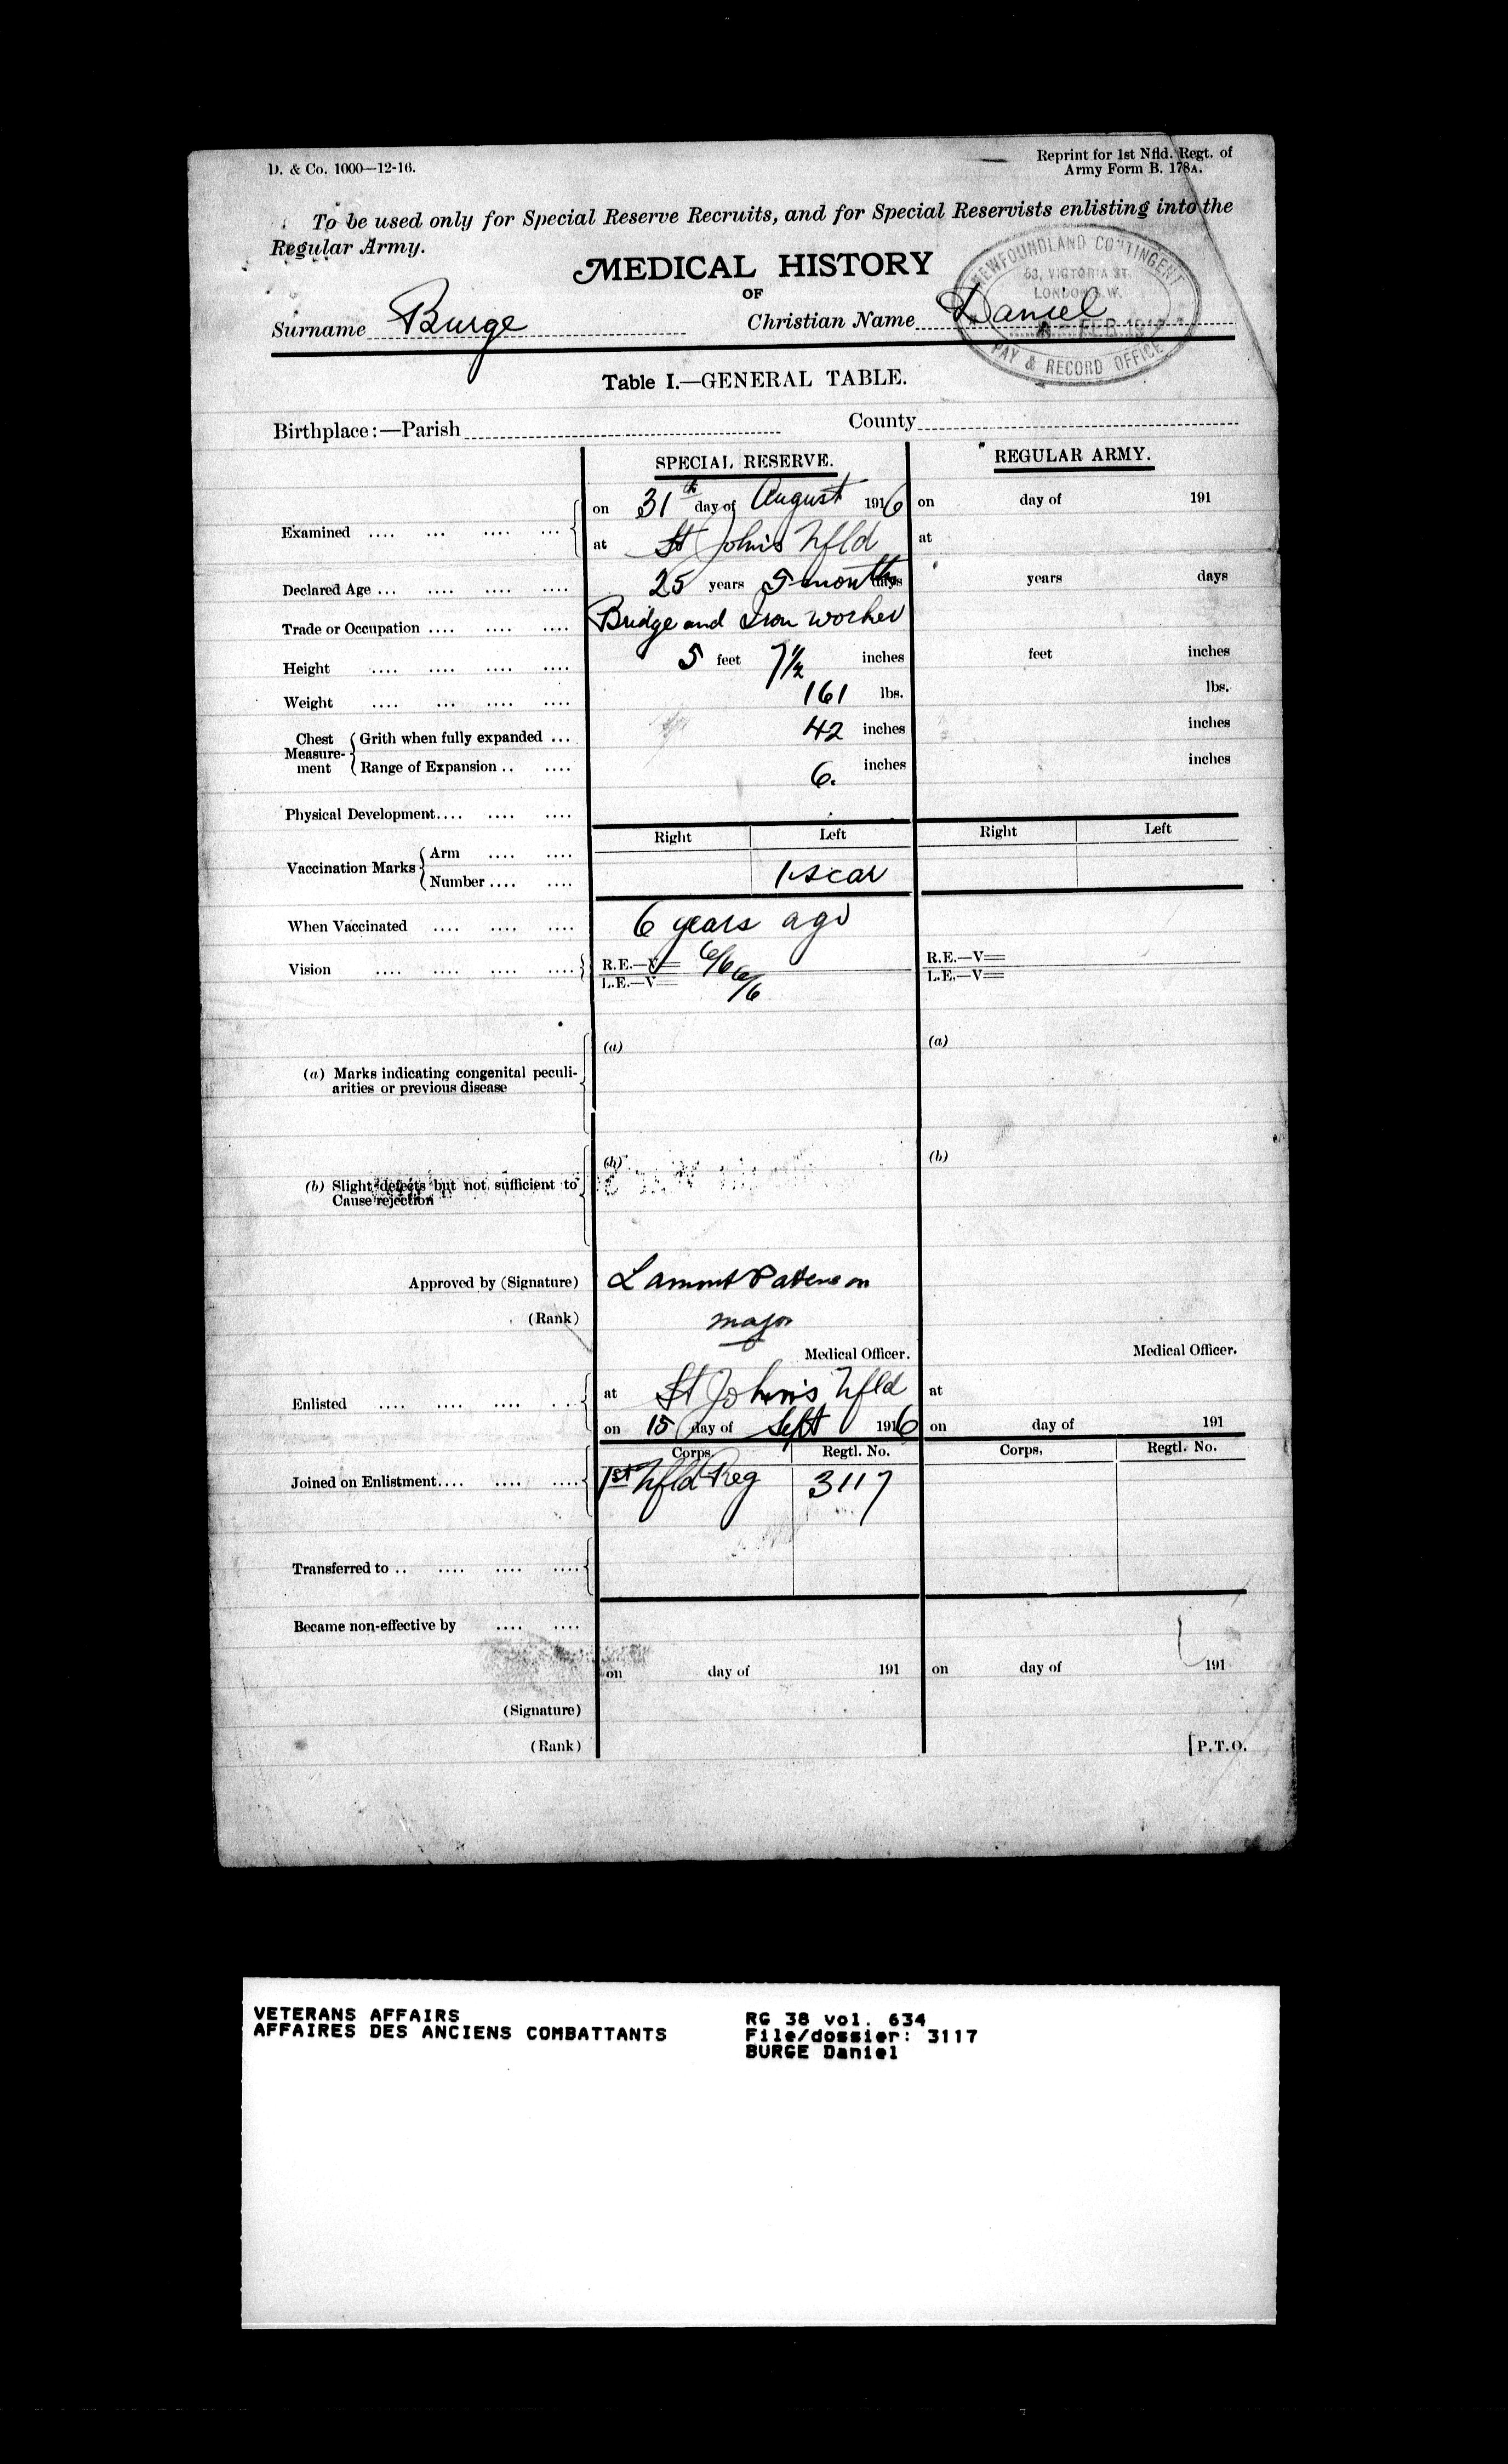 D. & Co. 1000—12-16.
Reprint for 1st Nfld. Regt. of
Army Form B. 178A.
To be used only for Special Reserve Recruits, and for Special Reservists enlisting into the
Regular Army.
MEDICAL HISTORY
OF
Surname Burge Christian Name Daniel
NEWFOUNDLAND CONTINGENT
63, VICTORIA ST.
LONDON S.W.
FEB 1917
PAY & RECORD OFFICE
Table I.—GENERAL TABLE.
Birthplace:—Parish County
SPECIAL RESERVE. REGULAR ARMY.
Examined .... ... .... ... on 31th day of August 1916 on day of 191
at St John's Nfld at
Declared Age ... .... .... .... 25 years 5 months days years days
Trade or Occupation .... .... .... Bridge and Iron worker
Height .... .... .... .... 5 feet 7½ inches feet inches
Weight .... ... .... .... 161 lbs. lbs.
Chest Measure-ment Grith when fully expanded ... 42 inches inches
Range of Expansion .. .... 6. inches inches
Physical Development.... .... ....
Right Left Right Left
Vaccination Marks Arm .... ....
Number .... .... 1 scar
When Vaccinated .... .... .... 6 years ago
Vision .... .... .... .... R.E.—V= 6/6 R.E.—V=
L.E.—V= 6/6 L.E.—V=
(a) (a)
(a) Marks indicating congenital peculi-
arities or previous disease
(b) (b)
(b) Slight defects but not sufficient to
Cause rejection
Approved by (Signature) Lamont Paterson
(Rank) Major
Medical Officer. Medical Officer.
Enlisted .... .... .... ... at St John's Nfld at
on 15 day of Sept 1916 on day of 191
Corps. Regtl. No. Corps, Regtl. No.
Joined on Enlistment.... .... .... 1st Nfld Reg 3117
Transferred to .. .... .... ....
Became non-effective by .... ....
on day of 191 on day of 191
(Signature)
(Rank)
[P.T.O.
VETERANS AFFAIRS
AFFAIRES DES ANCIENS COMBATTANTS
RG 38 vol. 634
File/dossier: 3117
BURGE Daniel